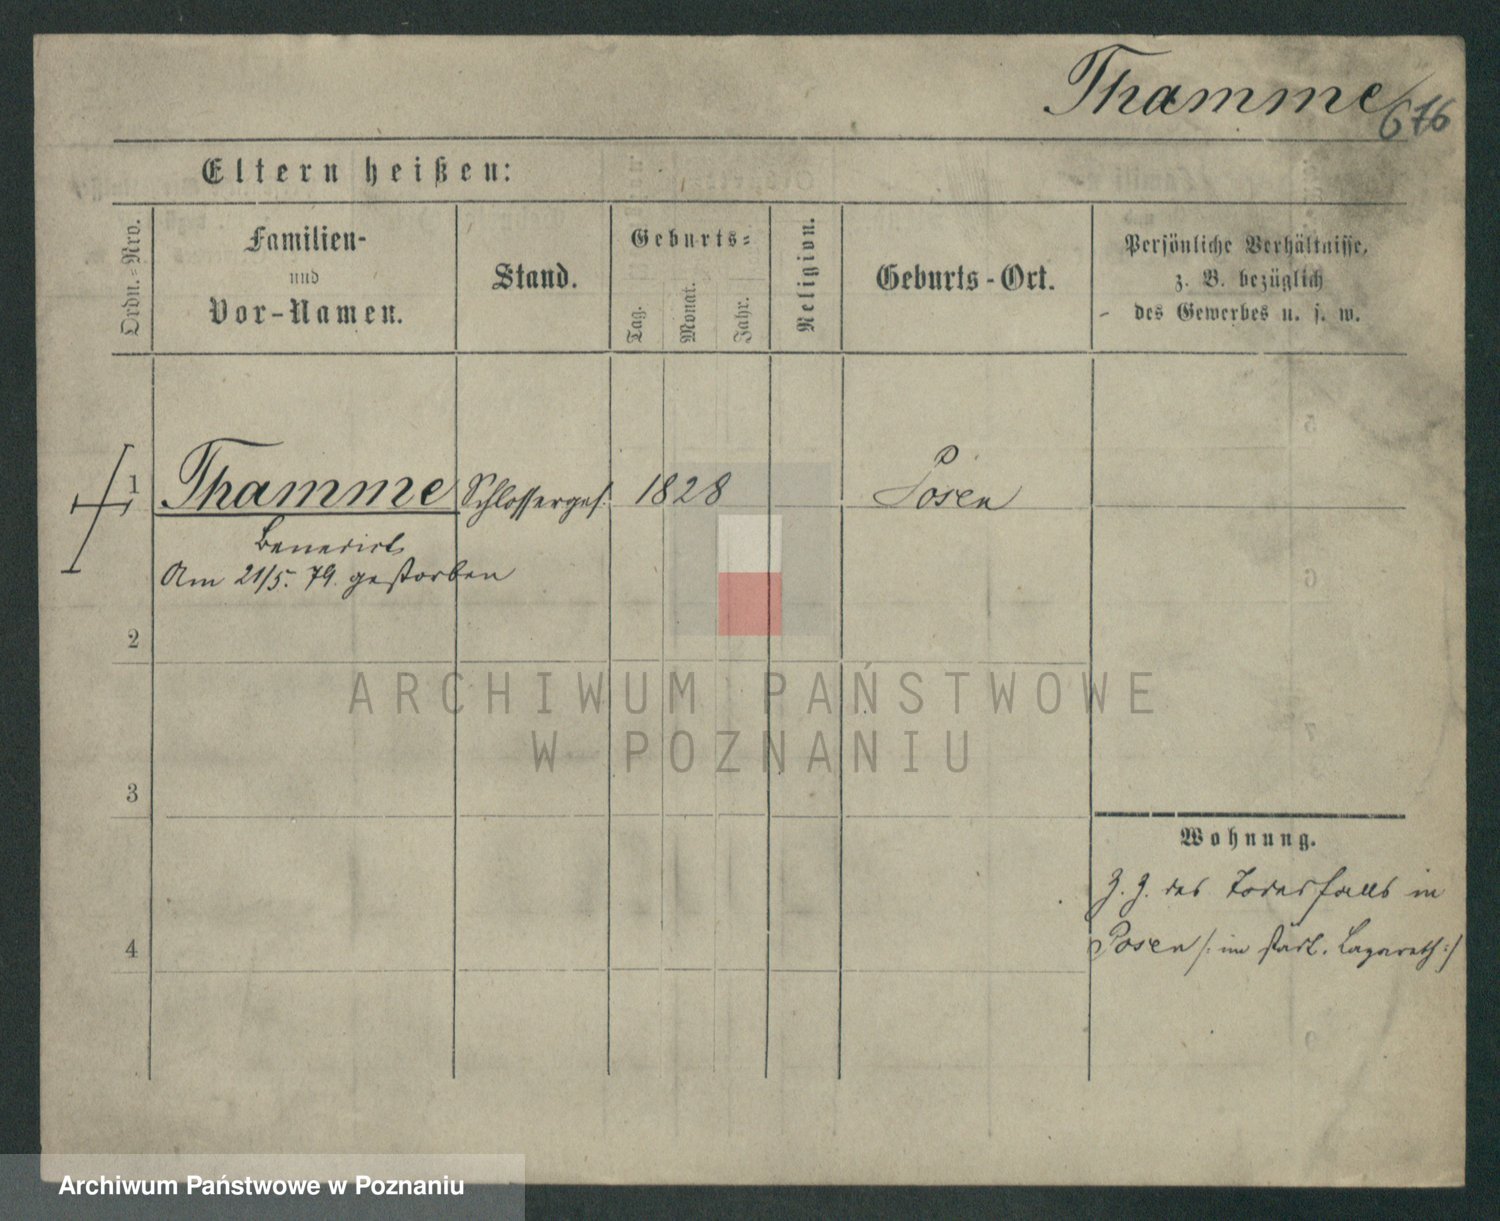 Thamme
676
Eltern heißen:
Ordn.-Nro.
Familien-
und
Vor-Namen.
Stand.
Geburts-
Tag.
Monat.
Jahr.
Religion.
Geburts-Ort.
Persönliche Verhältnisse,
z. B. bezüglich
des Gewerbes u. s. w.
1 Thamme Schlosserges. 1828 Posen
Benedict
Am 21/5. 79. gestorben
2
3
4
Wohnung.
Z. Z. des Todesfalls in
Posen /: im städt. Lazareth :/
ARCHIWUM PAŃSTWOWE
W POZNANIU
Archiwum Państwowe w Poznaniu